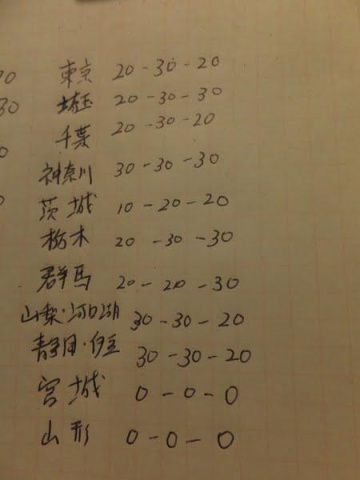 東京 20-30-20
埼玉 20-30-30
千葉 20-30-20
神奈川 30-30-30
茨城 10-20-20
栃木 20-30-30
群馬 20-20-30
山梨・河口湖 30-30-20
静岡・伊豆 30-30-20
宮城 0-0-0
山形 0-0-0